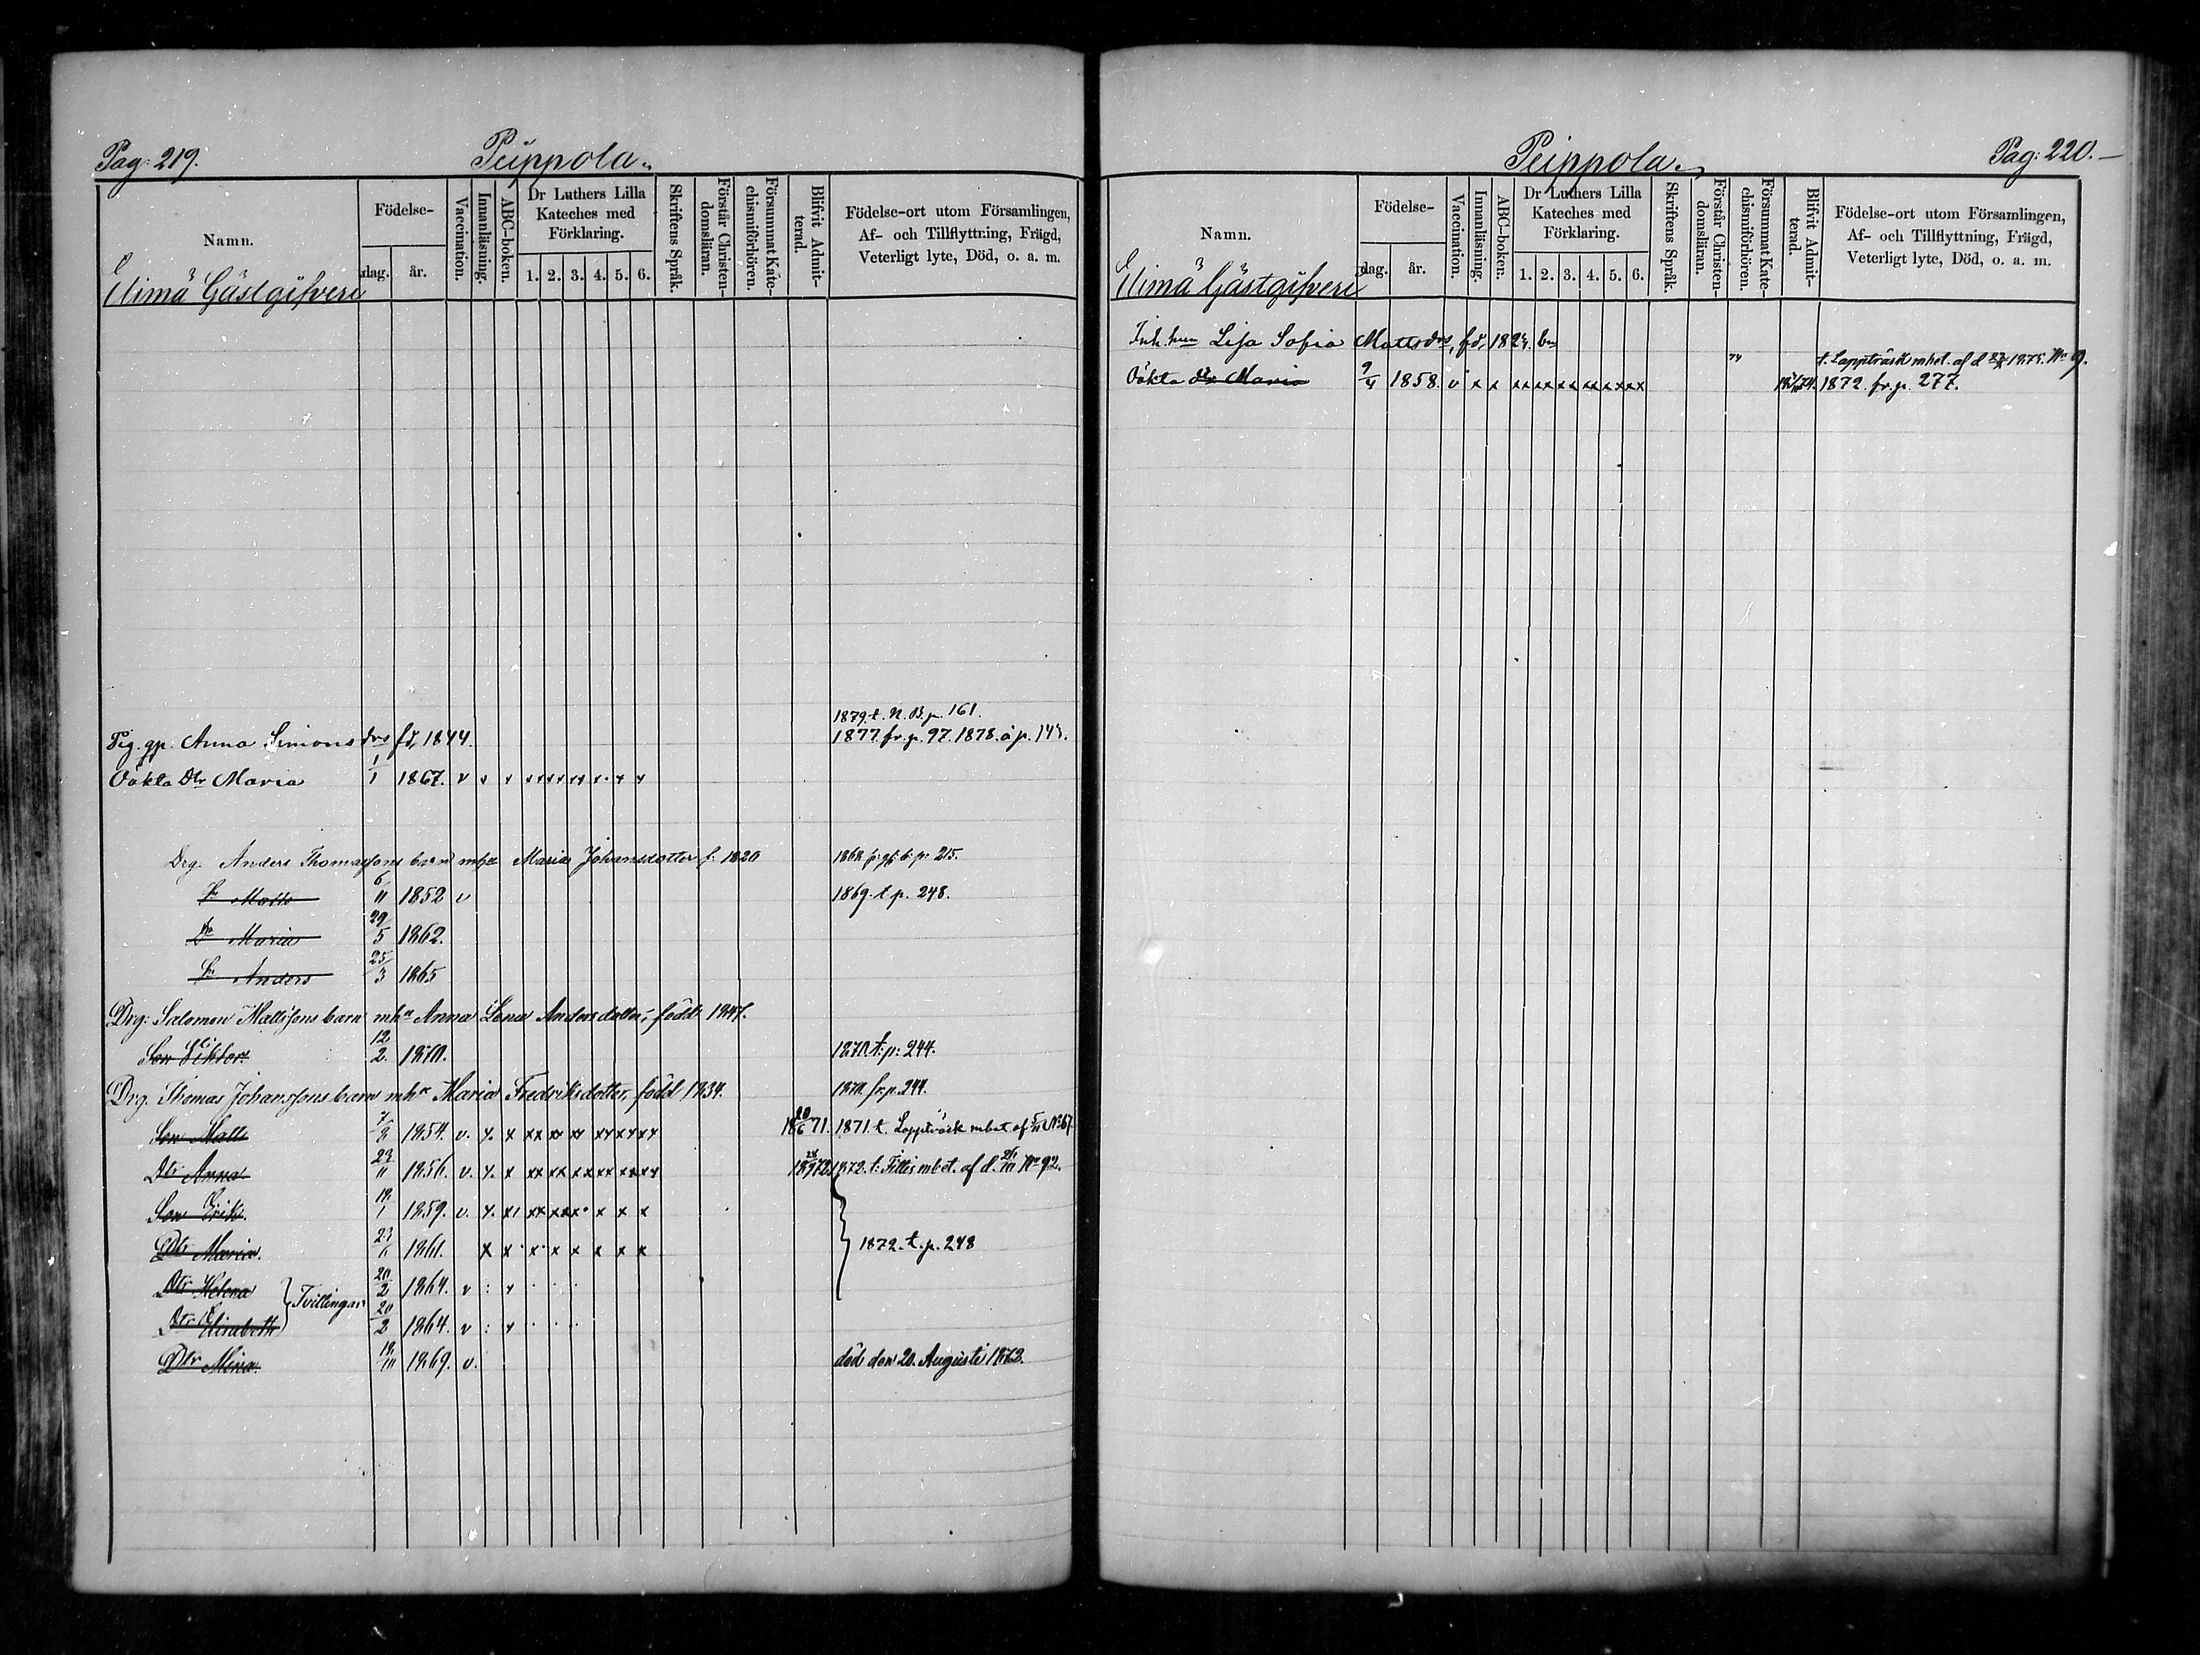 Pag: 219. Peippola.
Namn. Födelse- dag. år. Vaccination. Innanläsning. ABC-boken. Dr Luthers Lilla Kateches med Förklaring. 1. 2. 3. 4. 5. 6. Skriftens Språk. Förstår Christendomsläran. Försummat Katechismiförhören. Blifvit Admitterad. Födelse-ort utom Församlingen, Af- och Tillflyttning, Frägd, Veterligt lyte, Död, o. a. m.
Elimä Gästgifveri
1879. t. N. B. p. 161.
Pig. gp. Anna Simonsdrs fd, 1844. 1877. fr. p. 97. 1878. å p. 143.
Oäkta Dtr Maria 1/1 1867. v
Drg. Anders Thomassons barn mha Maria Johansdotter f. 1820 1868 215.
Sn Matts 6/11 1852 v 1869. t p. 248.
Dr Maria 29/5 1862.
Sn Anders 25/3 1865
Drg: Salomon Mattssons barn mha Anna Lena Andersdotter, född 1847.
Son Viktor. 12/2 1870. 1870. t. p: 244.
Drg. Thomas Johanssons barn mha Maria Fredriksdotter, född 1834. 1870. fr. p. 244.
Son Matts 1854. v. x. x xx xx xx xx xx xx 71. 1871. t. Lappträsk mbet af
Dtr Anna. 23/11 1856. v. x. x xx xx xx xx xx xx 1872. t: Tillis mbet. af d. No 92.
Son Erik. 1859. v.
Dtr Maria. 1861. x x x x x x x x 1872. t. p. 248
Dtr Helena 20/2 1864. v } Tvillingar
Dtr Elisabeth 20/2 1864. v
Dtr Mina. 1869. v. död den 20. Augusti 1873.
Peippola. Pag: 220.
Namn. Födelse- dag. år. Vaccination. Innanläsning. ABC-boken. Dr Luthers Lilla Kateches med Förklaring. 1. 2. 3. 4. 5. 6. Skriftens Språk. Förstår Christendomsläran. Försummat Katechismiförhören. Blifvit Admitterad. Födelse-ort utom Församlingen, Af- och Tillflyttning, Frägd, Veterligt lyte, Död, o. a. m.
Elimä Gästgifveri
Inh. Lisa Sofia Mattsdrs, fd,
t. Lappträsk mbet. af d 1875. No 9.
Oäkta dtr Maria 9/4 1858. v x x xx xx xx xx xx xx 1872. fr. p. 277.